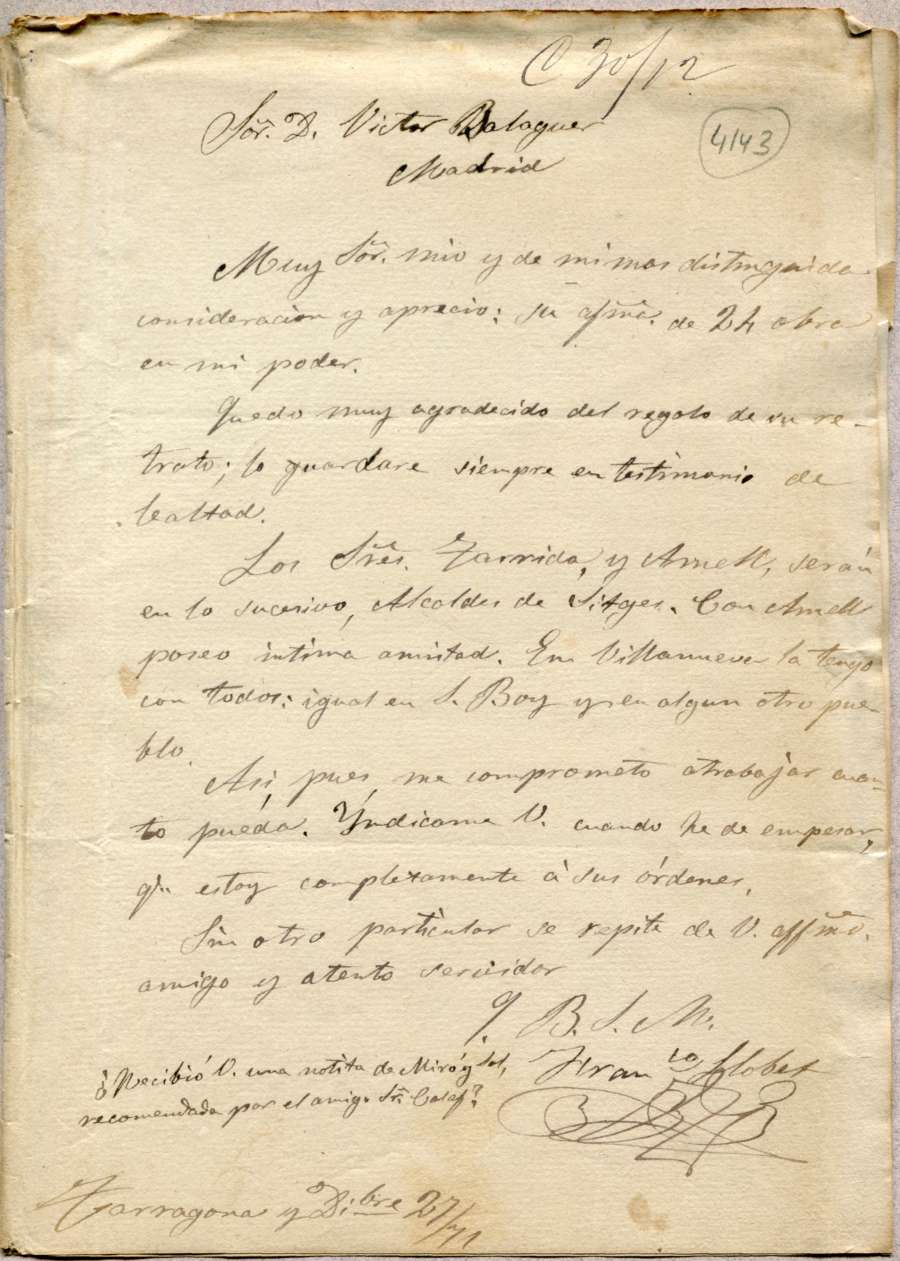 C 30/12
4143
Sor. D. Victor Balaguer
Madrid
Muy Sor. mio y de mi mas distinguida
consideracion y aprecio: su afma. de 24 obra
en mi poder.
Quedo muy agradecido del regalo de su re-
trato; lo guardare siempre en testimonio de
lealtad.
Los Sres. Tarrida, y Amell, serán
en lo sucesivo, Alcaldes de Sitges. Con Amell
poseo intima amistad. En Villanueva la tengo
con todos: igual en S. Boy y en algun otro pue-
blo.
Asi, pues, me comprometo atrabajar cuan-
to puéda. Yndicame V. cuando he de empesar,
qu estoy completamente à sus órdenes.
Sin otro particular se repite de V. affmo.
amigo y atento servidor
q. B. S. M.
Franco Llobet
¿Recibió V. una notita de Miró y Sol,
recomendada por el amigo Sr.
Tarragona y Dibre 27/71